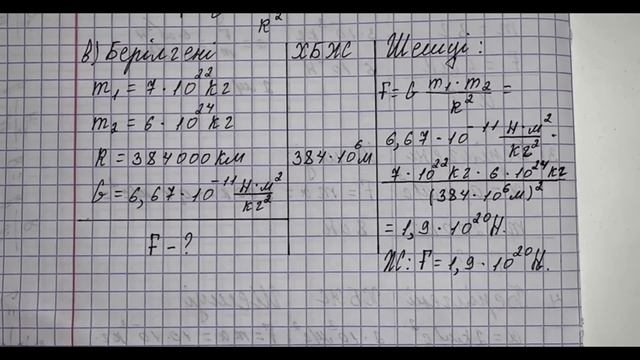 R²
в) Берілгені
m₁ = 7 · 10²² кг
m₂ = 6 · 10²⁴ кг
R = 384000 км
G = 6,67 · 10⁻¹¹ Н·м²/кг²
F - ?
ХБЖ
384 · 10⁶ м
Шешуі:
F = G m₁ · m₂ / R² =
6,67 · 10⁻¹¹ Н·м²/кг² ·
7 · 10²² кг · 6 · 10²⁴ кг
(384 · 10⁶ м)²
= 1,9 · 10²⁰ Н.
Ж: F = 1,9 · 10²⁰ Н.